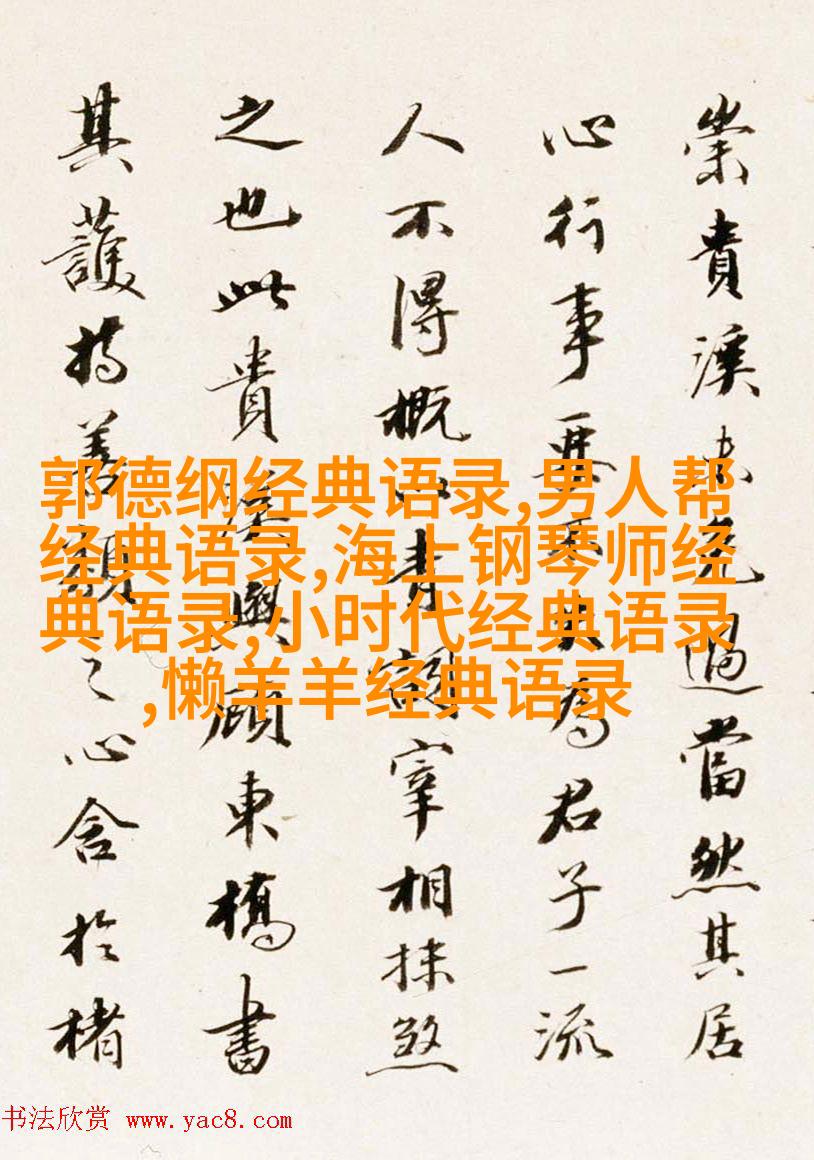 崇貴溪未免過當然其居
心行事要不失為君子一流
人不得概以青詞宰相抹煞
之也此貴溪與顧東橋書
其護持善類之心含於楮
郭德纲经典语录,男人帮
经典语录,海上钢琴师经
典语录,小时代经典语录
,懒羊羊经典语录
书法欣赏 www.yac8.com